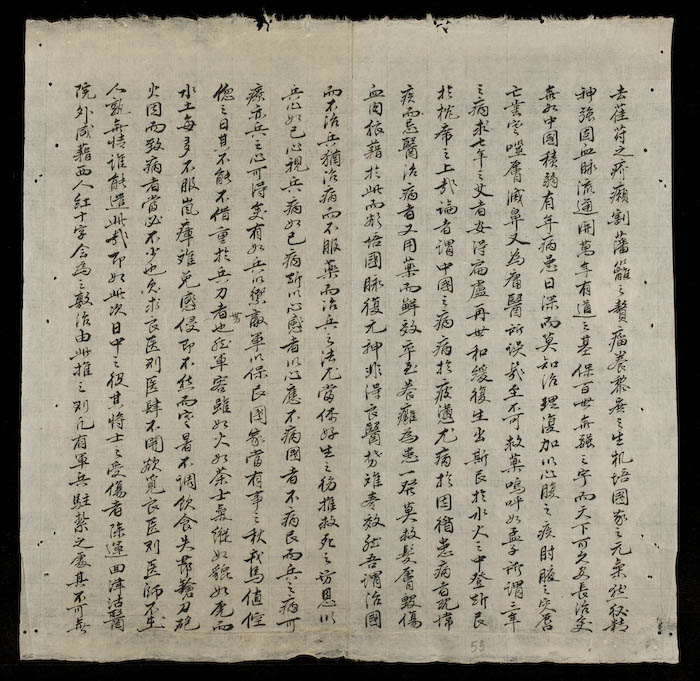 去萑苻之疥癩割藩籬之贅瘤養黎庶之生机培國家之元氣然後精
神強固血脉流通開萬年有道之基保百世無疆之宇而天下可久安長治矣
無如中國積弱有年病患日深而莫知治理復加以心腹之疾肘腋之
亡輩空嗟膚滅鼻又為庸醫所誤哉至不可救藥嗚呼如孟子所謂三年
之病求七年之艾者安得扁盧再世和緩復生出斯民於水火之中登斯民
於枕席之上哉論者謂中國之病病於疲憊尤病於因循患病者既諱
疾而忌醫治病者又用藥而鮮效卒至養癰為患一潰莫救髮膚毀傷
血肉狼藉於此而欲培國脉復元神非得良醫勢難奏效然吾謂治國
而不治兵猶治病而不服藥而治兵之法尤當体好生之 推救死之 恩以
兵心如己心視兵病如己病斯以心感者以心應不病國者不病民而兵之病可
療亦兵之心可得矣有如兵以禦敵軍以保民國家當有事之秋我馬值倥
傯之日其不能不借重於兵刀者也然軍容雖如火如荼士氣縱如貔如虎而
水土每多不服嵐瘴難免感侵即不然而寒暑不調飲食失節鎗刀砲
火因而致病者當必不少也次求良医則医肆不開欲覓良医則医師不至
人孰無情誰能遣此哉即如此次日中之役其將士之受傷者除運回津沽醫
院外咸藉西人紅十字会為之救治由此推之則凡有軍兵駐紮之處其不可無
53